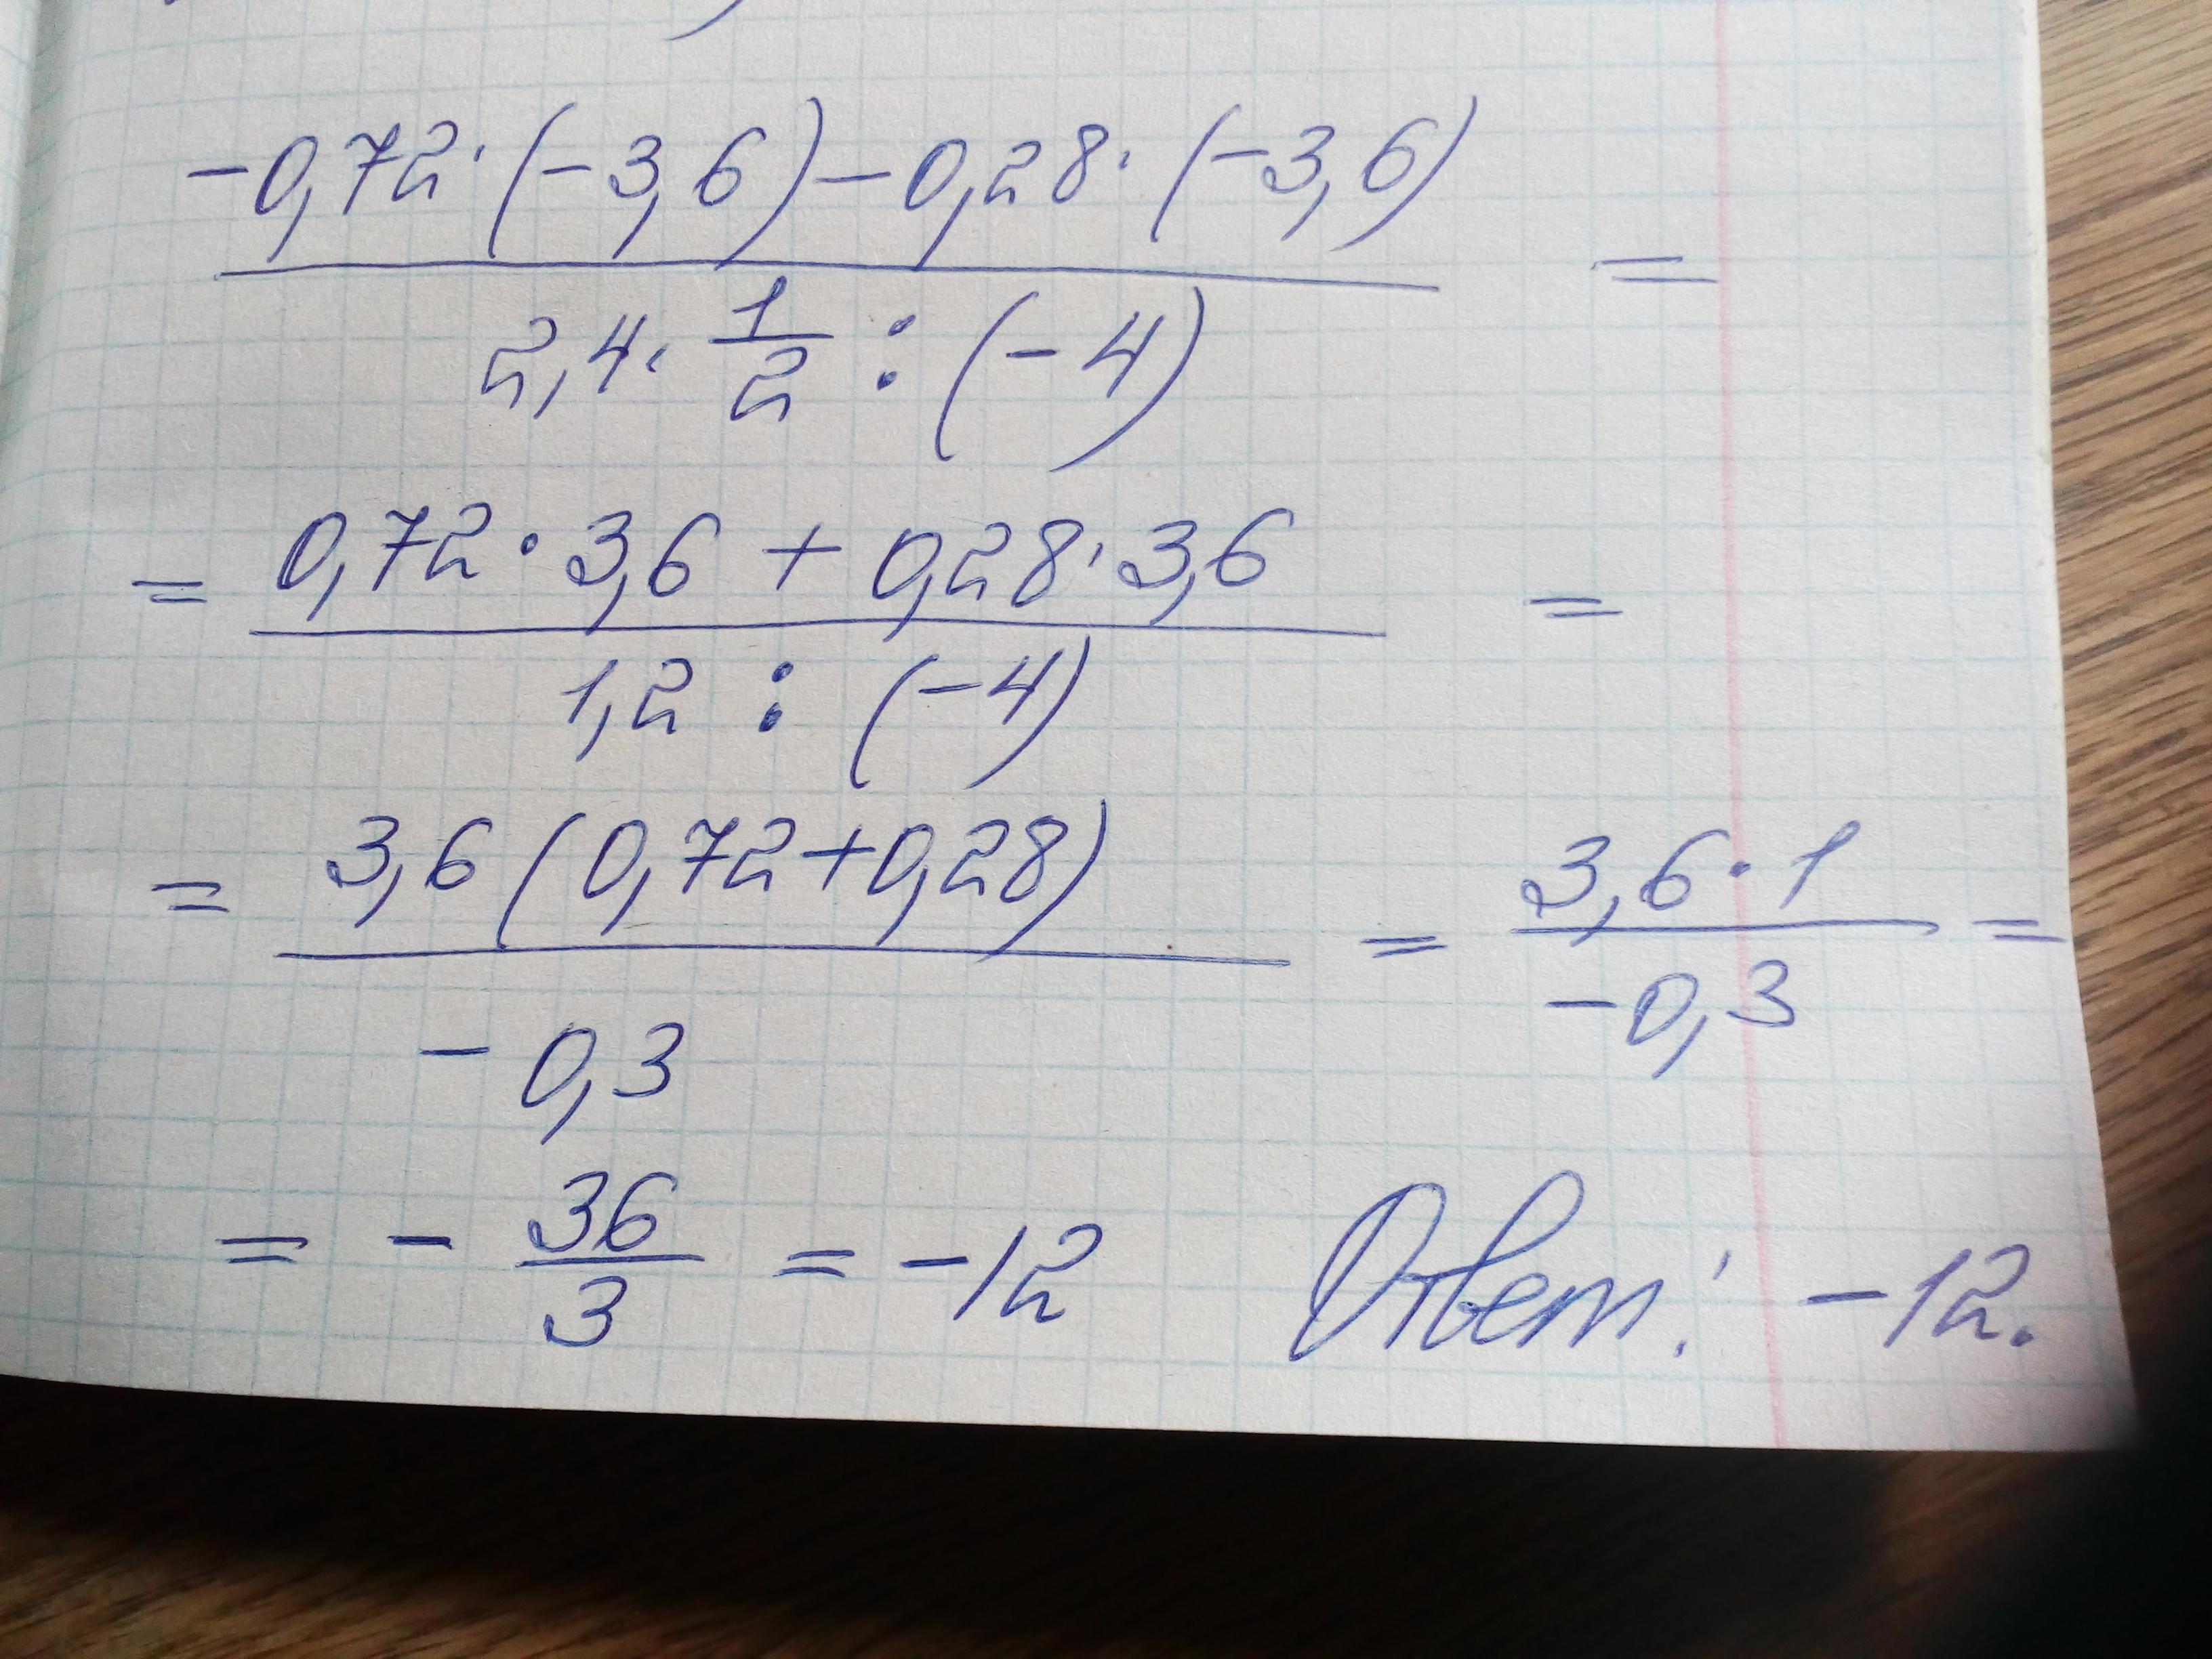 -0,72·(-3,6)-0,28·(-3,6)
2,4·1/2:(-4)
=
=
0,72·3,6+0,28·3,6
1,2:(-4)
=
=
3,6(0,72+0,28)
-0,3
=
3,6·1
-0,3
=
= -36/3 = -12 Ответ: -12.